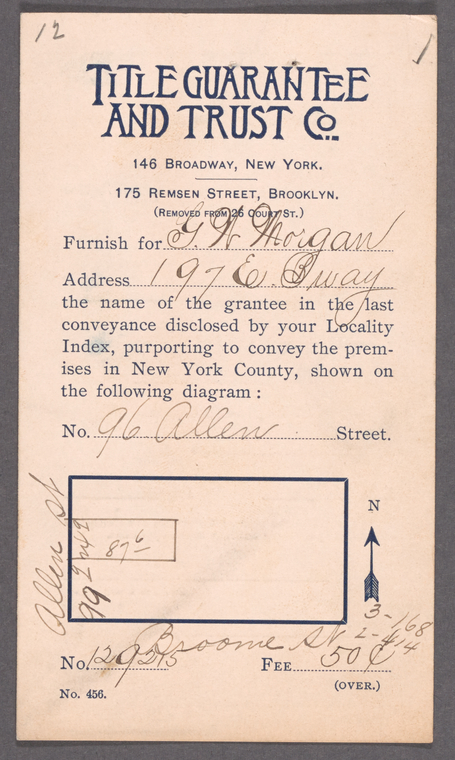 12
TITLE GUARANTEE
AND TRUST CO.
146 BROADWAY, NEW YORK.
175 REMSEN STREET, BROOKLYN.
(REMOVED FROM 26 COURT ST.)
Furnish for G N Morgan
Address 197 E. Bway
the name of the grantee in the last
conveyance disclosed by your Locality
Index, purporting to convey the prem-
ises in New York County, shown on
the following diagram :
No. 96 Allen Street.
Allen St
87 6
N
Broome St
3-168
2-414
No. FEE 50¢
(OVER.)
No. 456.